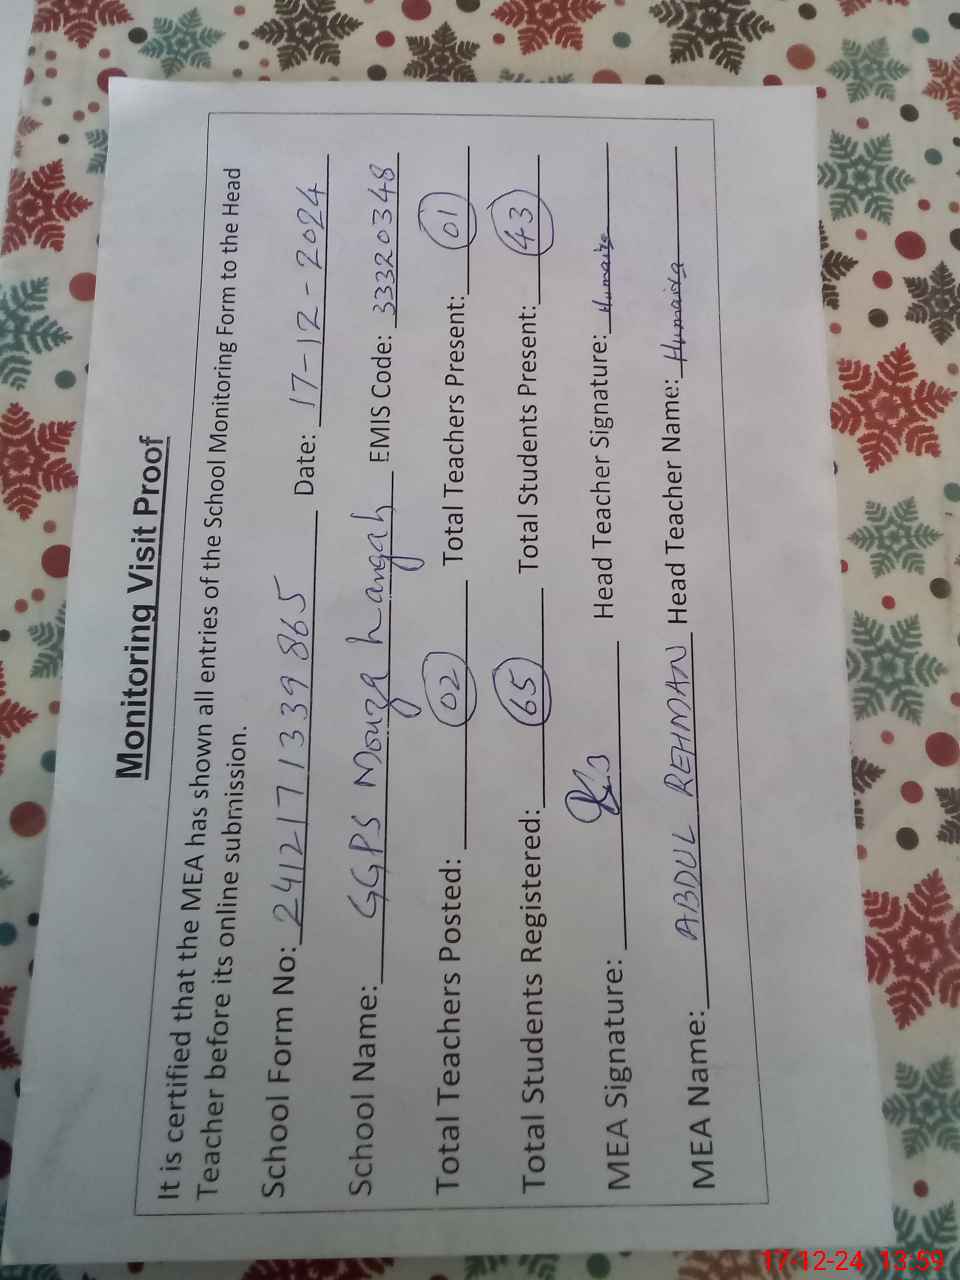 Monitoring Visit Proof
It is certified that the MEA has shown all entries of the School Monitoring Form to the Head
Teacher before its online submission.
School Form No: 2412171339865 Date: 17-12-2024
School Name: GGPS Mouza Langah EMIS Code: 33320348
Total Teachers Posted: 02 Total Teachers Present: 01
Total Students Registered: 65 Total Students Present: 43
MEA Signature: Head Teacher Signature: Humaira
MEA Name: ABDUL REHMAN Head Teacher Name: Humaira
17-12-24 13:59